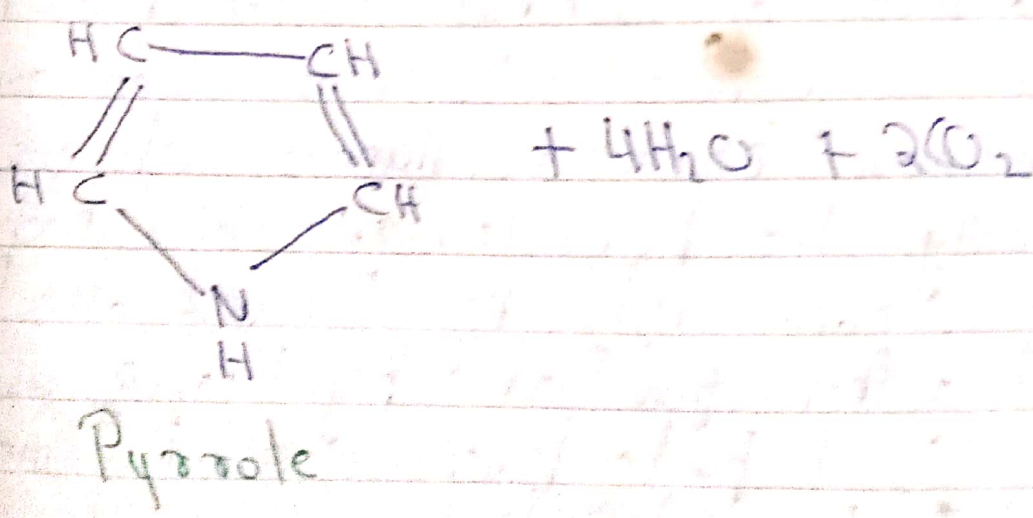 HC CH
HC CH + 4H₂O + 2CO₂
N
H
Pyrrole